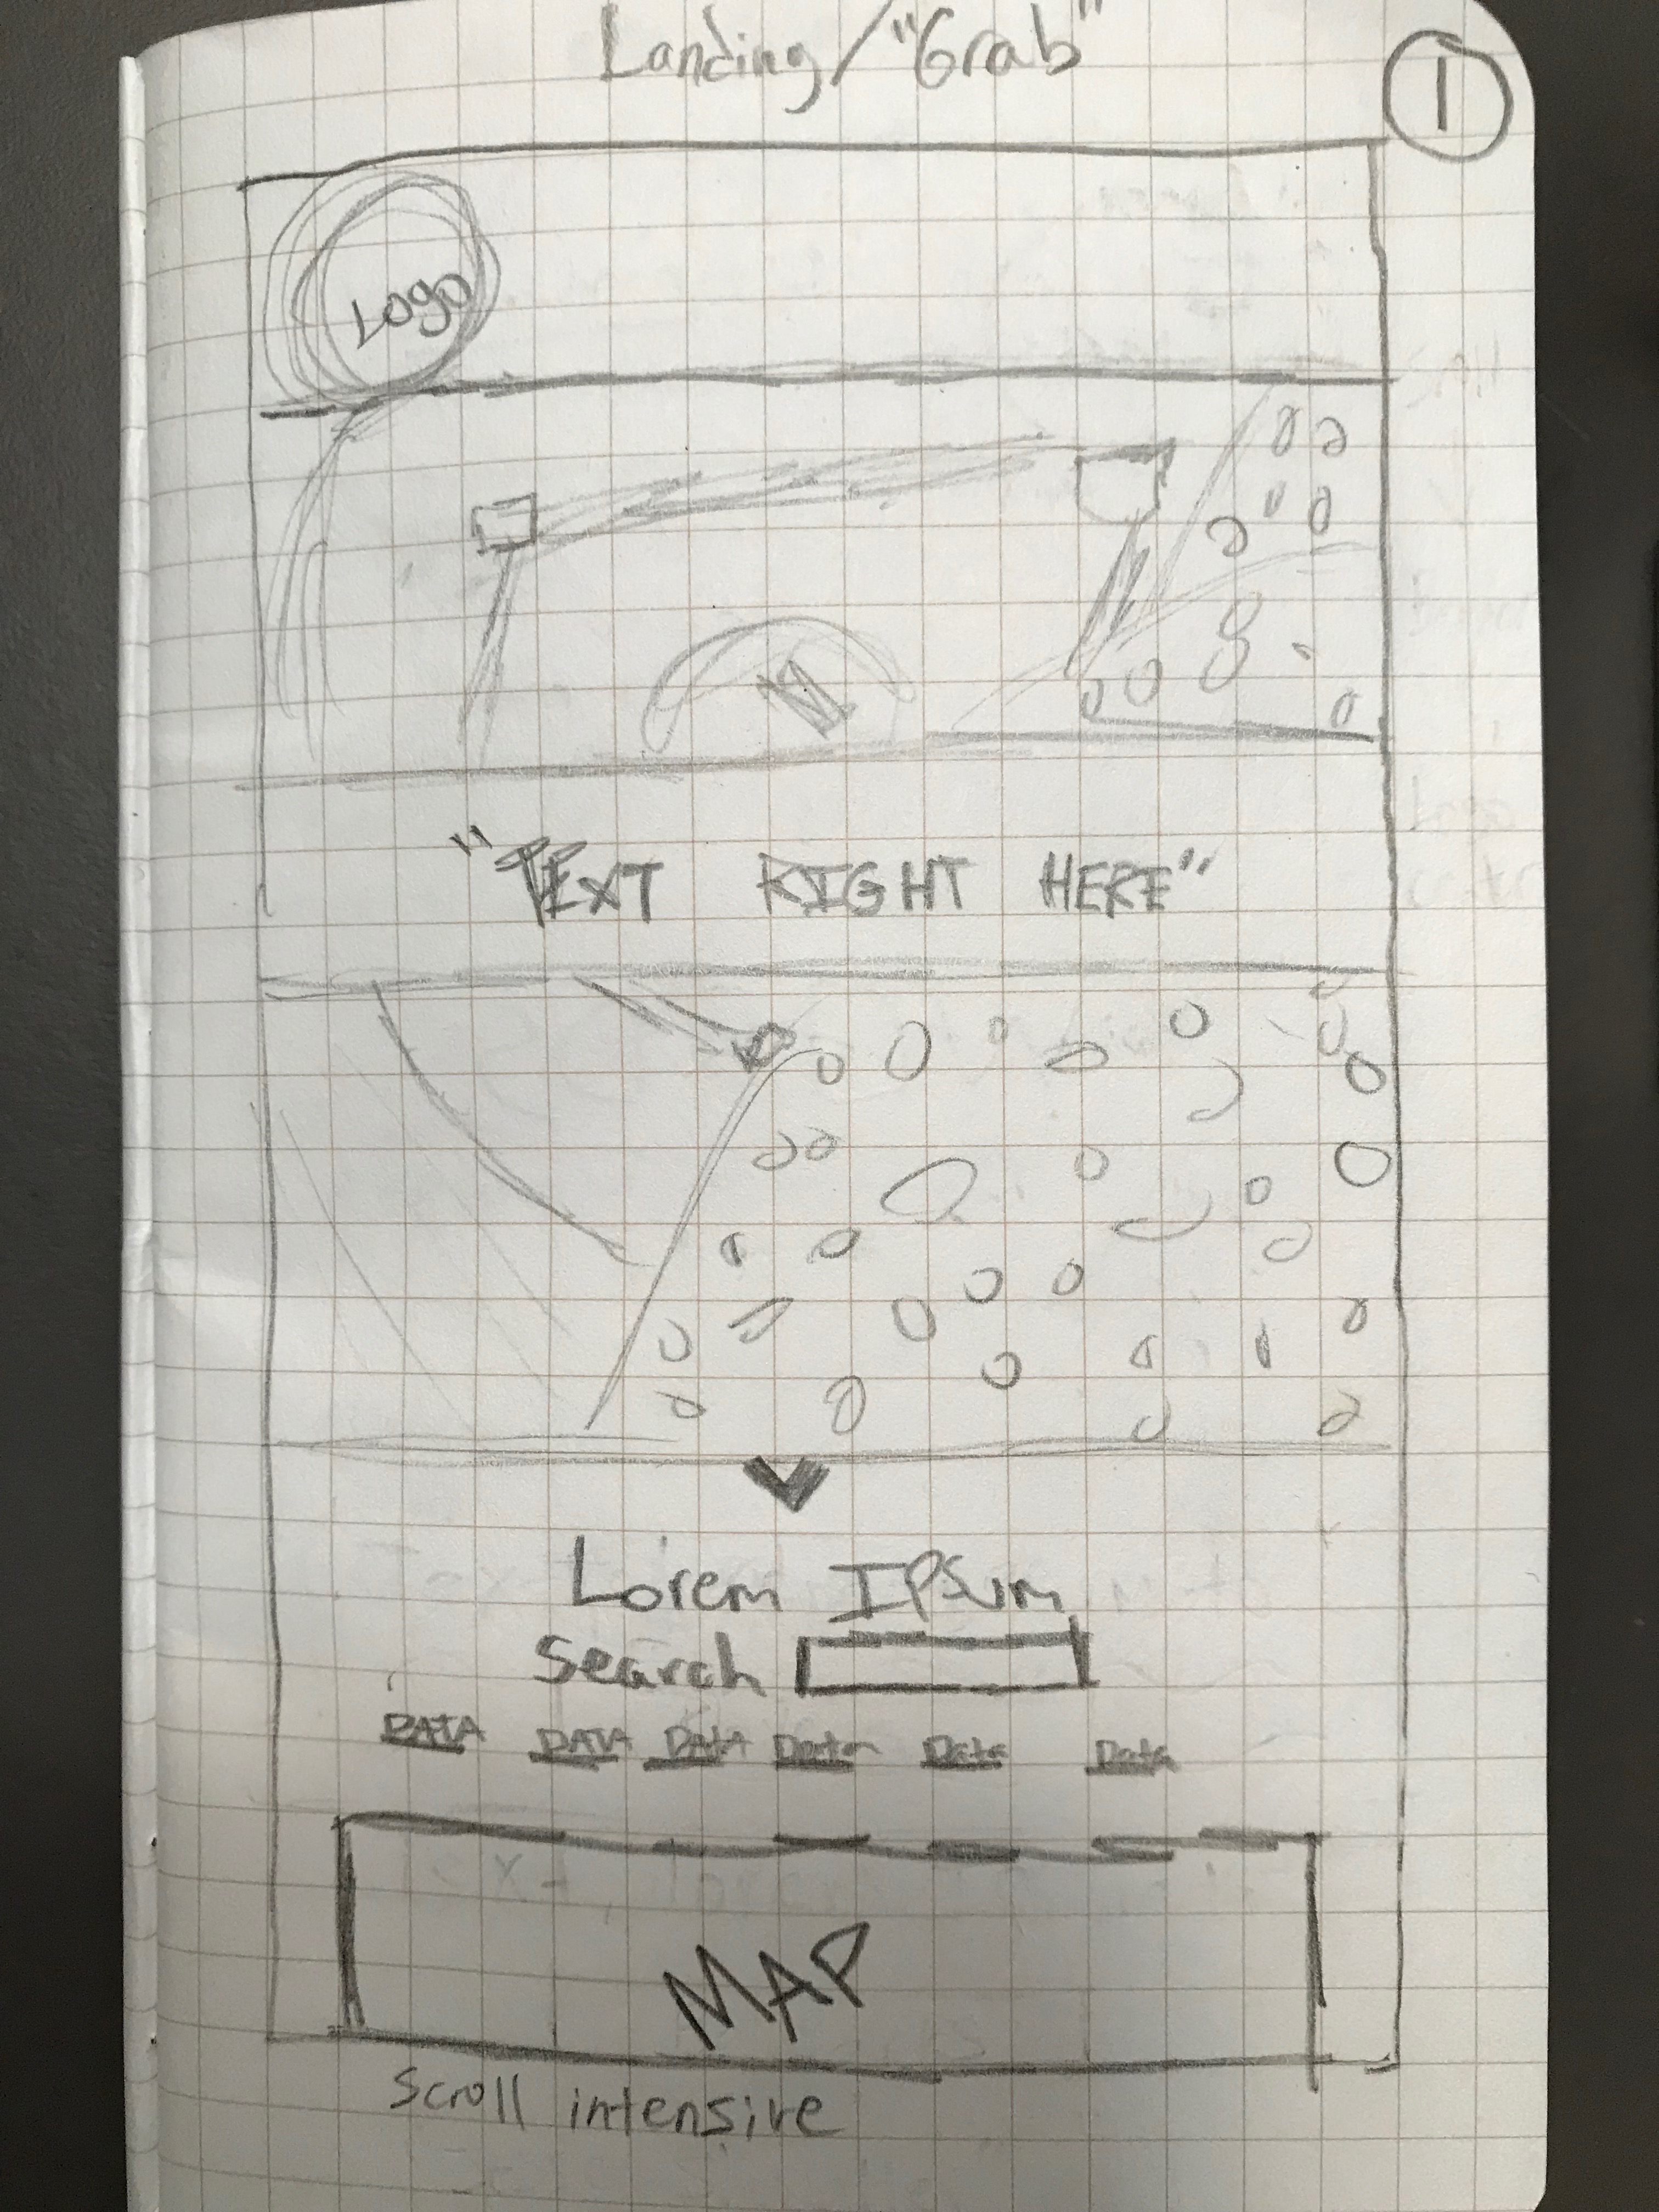 Landing/"Grab"
1
Logo
M
"TEXT RIGHT HERE"
Lorem IPSum
Search
DATA DATA DATA Data Data Data
MAP
Scroll intensive